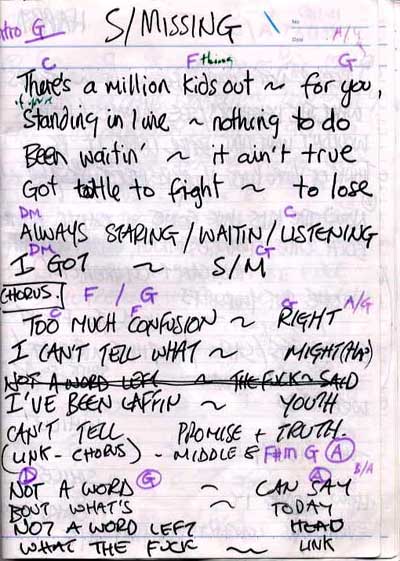 Intro G S/MISSING No Date A/G
C F thing G
There's a million kids out ~ for you,
if you're
Standing in line ~ nothing to do
Been waitin' ~ it ain't true
Got to fight ~ to lose
DM C
ALWAYS STARING/WAITIN/LISTENING
DM G
I GOT ~ S/M
CHORUS. F / G
C F G A/G
TOO MUCH CONFUSION ~ RIGHT
I CAN'T TELL WHAT ~ MIGHT
NOT A WORD LEFT ~ THE FUCK ~ SAID
I'VE BEEN LAFFIN ~ YOUTH
CAN'T TELL PROMISE + TRUTH.
(LINK - CHORUS) - MIDDLE 8 F#m G A
D G A B/A
NOT A WORD ~ CAN SAY
BOUT WHAT'S ~ TODAY
NOT A WORD LEFT HEAD
WHAT THE FUCK ~ LINK